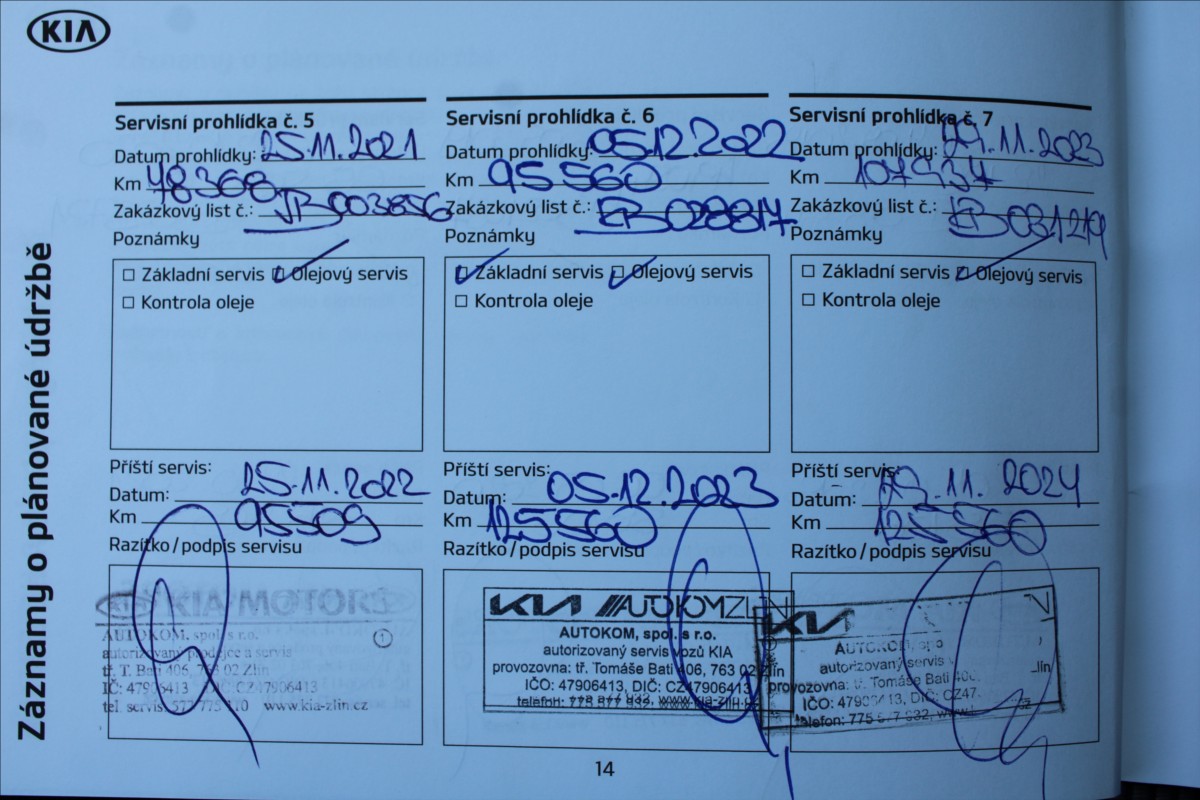 KIA
Záznamy o plánované údržbě
Servisní prohlídka č. 5
Datum prohlídky: 25.11.2021
Km 48368
Zakázkový list č.:
Poznámky
Základní servis Olejový servis
Kontrola oleje
Příští servis:
Datum: 25.11.2022
Km 95509
Razítko/podpis servisu
KIA MOTORS
AUTOKOM, spol. s r.o.
autorizovaný prodejce a servis
tř. T. Bati 406, 763 02 Zlín
IČ: 47906413 DIČ: CZ47906413
tel. servis: 577 775 310 www.kia-zlin.cz
Servisní prohlídka č. 6
Datum prohlídky: 05.12.2022
Km 95560
Zakázkový list č.:
Poznámky
Základní servis Olejový servis
Kontrola oleje
Příští servis:
Datum: 05.12.2023
Km 125560
Razítko/podpis servisu
KIA AUTOKOM ZL
AUTOKOM, spol. s r.o.
autorizovaný servis vozů KIA
provozovna: tř. Tomáše Bati 406, 763 02 Zlín
IČO: 47906413, DIČ: CZ47906413
telefon: 775 577 832, www.kia-zlin.cz
Servisní prohlídka č. 7
Datum prohlídky: 11.2023
Km 107934
Zakázkový list č.:
Poznámky
Základní servis Olejový servis
Kontrola oleje
Příští servis:
Datum: 11.2024
Km 125560
Razítko/podpis servisu
KIA
AUTOKOM, spo
autorizovaný servis v
provozovna: tř. Tomáše Bati 406, lín
IČO: 47906413, DIČ: CZ47
telefon: 775 577 832, www.
14